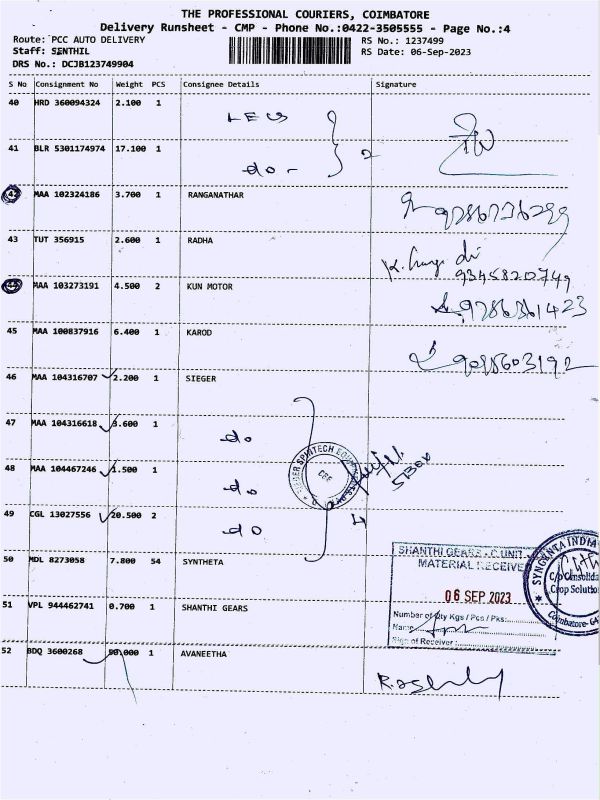 THE PROFESSIONAL COURIERS, COIMBATORE
Delivery Runsheet - CMP - Phone No.:0422-3505555 - Page No.:4
Route: PCC AUTO DELIVERY
RS No.: 1237499
Staff: SENTHIL
RS Date: 06-Sep-2023
DRS No.: DCJB123749904
S No Consignment No Weight PCS Consignee Details Signature
40 HRD 360094324 2.100 1
41 BLR 5301174974 17.100 1 do - 2
42 MAA 102324186 3.700 1 RANGANATHAR
43 TUT 356915 2.600 1 RADHA
9345820749
44 MAA 103273191 4.500 2 KUN MOTOR
45 MAA 100837916 6.400 1 KAROD
46 MAA 104316707 2.200 1 SIEGER
47 MAA 104316618 3.600 1 do
48 MAA 104467246 1.500 1 do
49 CGL 13027556 20.500 2 do
50 MDL 8273058 7.800 54 SYNTHETA
51 VPL 944462741 0.700 1 SHANTHI GEARS
52 BDQ 3600268 1 AVANEETHA
SPINTECH
CBE
5 BOX
SHANTHI GEARS - C UNIT
MATERIAL RECEIVE
06 SEP 2023
Number of Qty Kgs / Pcs / Pks:
Name
Sign of Receiver
SYNGENTA INDIA
C/o Consolida
Crop Solutio
Coimbatore- 64